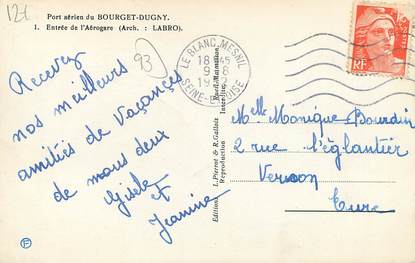 121
Port aérien du BOURGET-DUGNY.
1. Entrée de l'Aérogare (Arch. : LABRO).
93
Recevez
nos meilleurs
amitiés de Vacances
de nous deux
Gisèle et
Jeanine
LE BLANC MESNIL
18
9 8
19
SEINE-
Editions L. Pierrot & R. Gallois
Reproduction Interdite
RF
Melle Monique Bourdin
2 rue l'églantier
Vernon
Eure